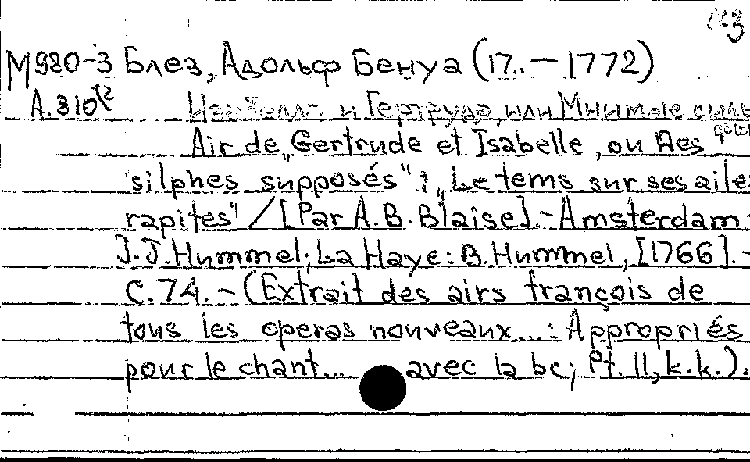 М980-3 Блез, Адольф Бенуа (17..-1772)
А.310 Изабелла и Гертруда, или Мнимые силь
Air de „Gertrude et Isabelle, ou Les
silphes supposés": „Le tems sur ses aile
rapites" / [Par A.B.Blaise].-Amsterdam
J.J.Hummel; La Haye: B.Hummel, [1766].-
С.74.-(Extrait des airs françois de
tous les operas nouveaux...: Appropriés
pour le chant... avec la bc; Pt.II, k.k.).